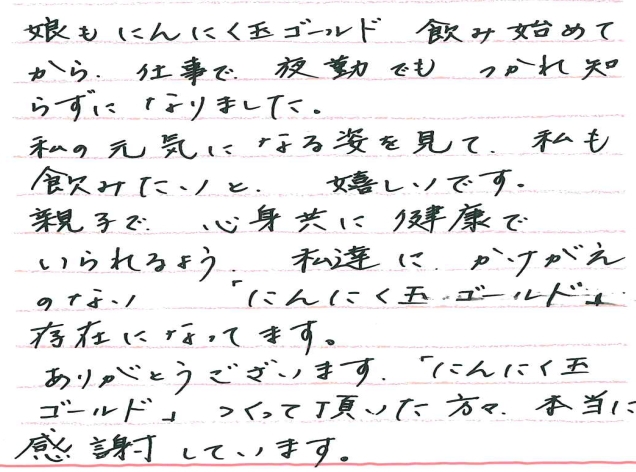 娘もにんにく玉ゴールド 飲み始めて
から、仕事で、夜勤でも つかれ知
らずに なりました。
私の元気になる姿を見て、私も
飲みたいと、 嬉しいです。
親子で、心身共に健康で
いられるよう、 私達に、かけがえ
のない 「にんにく玉ゴールド」
存在になってます。
ありがとうございます、「にんにく玉
ゴールド」つくって頂いた方々、本当に
感謝しています。